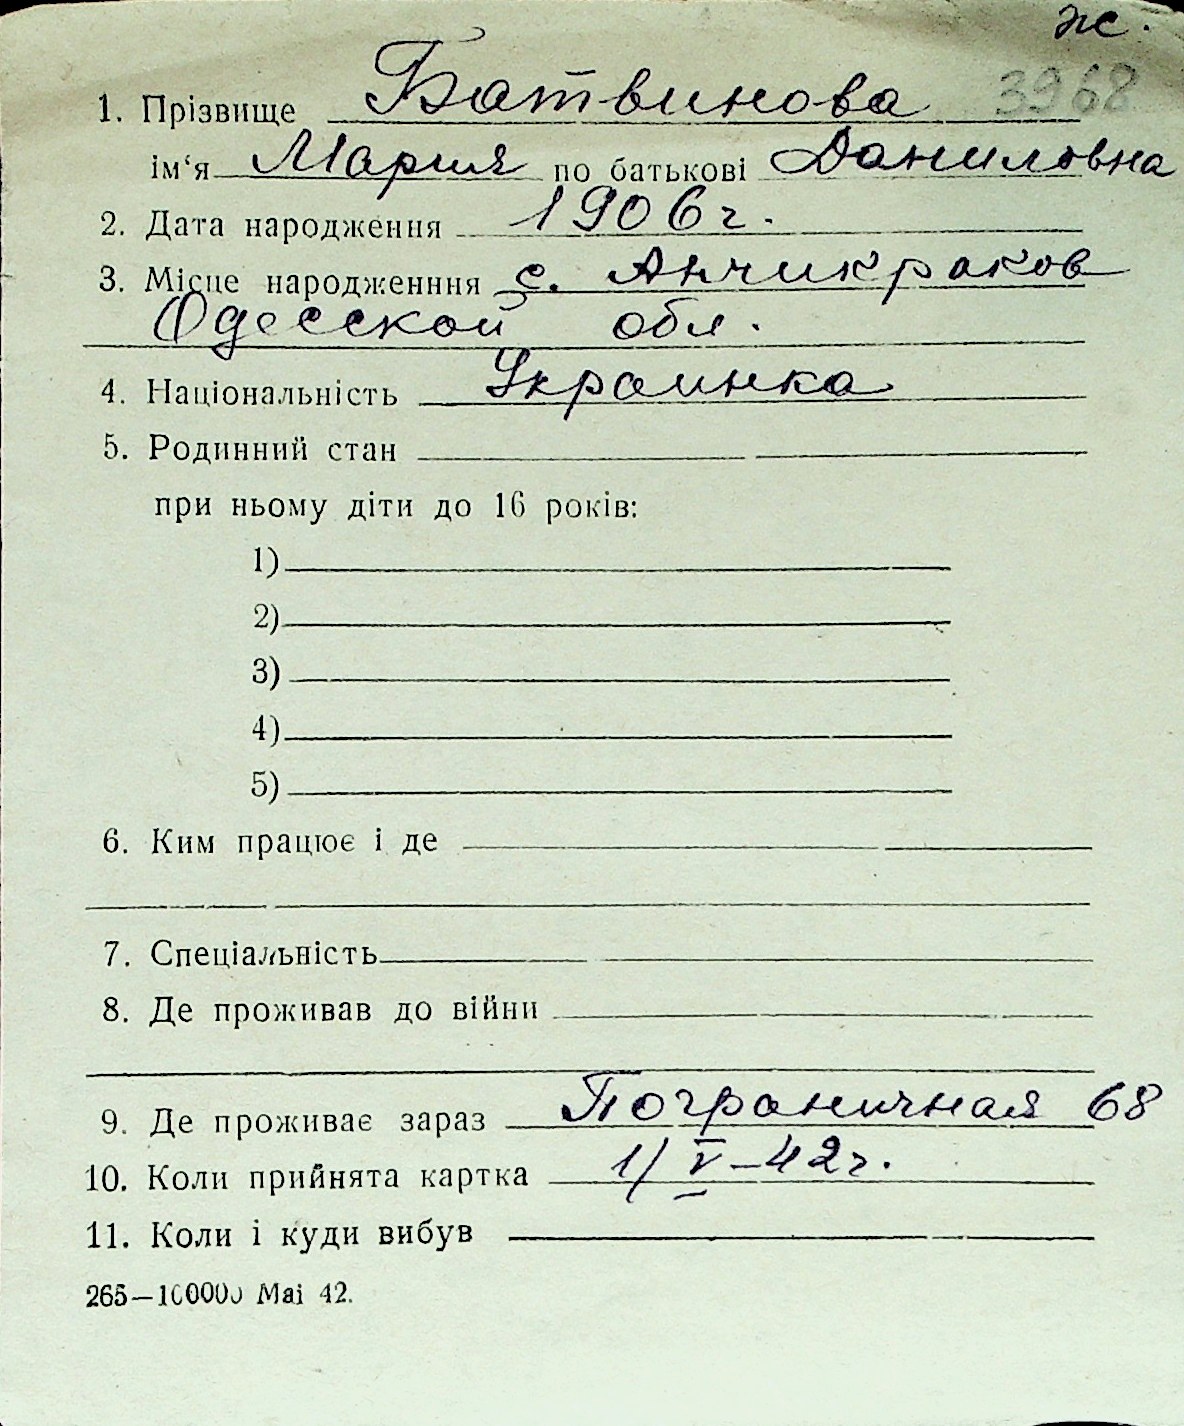 ж.
3968
1. Прізвище Батвинова
ім‘я Мария по батькові Даниловна
2. Дата народження 1906 г.
3. Місце народженння с. Анчикраков
Одесской обл.
4. Національність Украинка
5. Родинний стан
при ньому діти до 16 років:
1)
2)
3)
4)
5)
6. Ким працює і де
7. Спеціальність
8. Де проживав до війни
9. Де проживає зараз Пограничная 68
10. Коли прийнята картка 1/V–42 г.
11. Коли і куди вибув
265—100000 Маі 42.